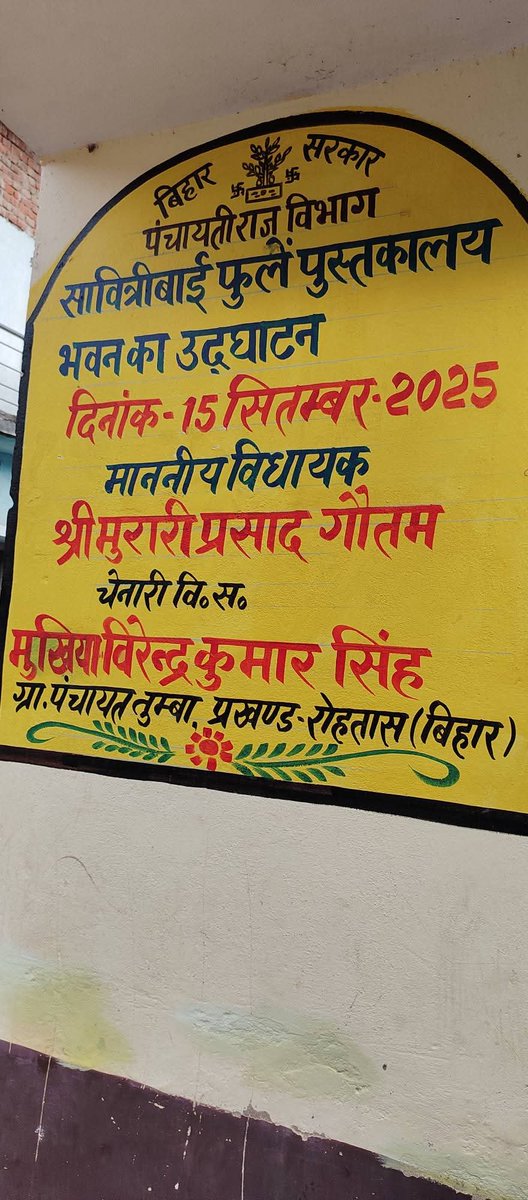 बिहार सरकार
पंचायतीराज विभाग
सावित्रीबाई फुलें पुस्तकालय
भवन का उद्घाटन
दिनांक - 15 सितम्बर - 2025
माननीय विधायक
श्री मुरारी प्रसाद गौतम
चेनारी वि॰ स॰
मुखिया विरेन्द्र कुमार सिंह
ग्रा. पंचायत तुम्बा, प्रखण्ड - रोहतास (बिहार)